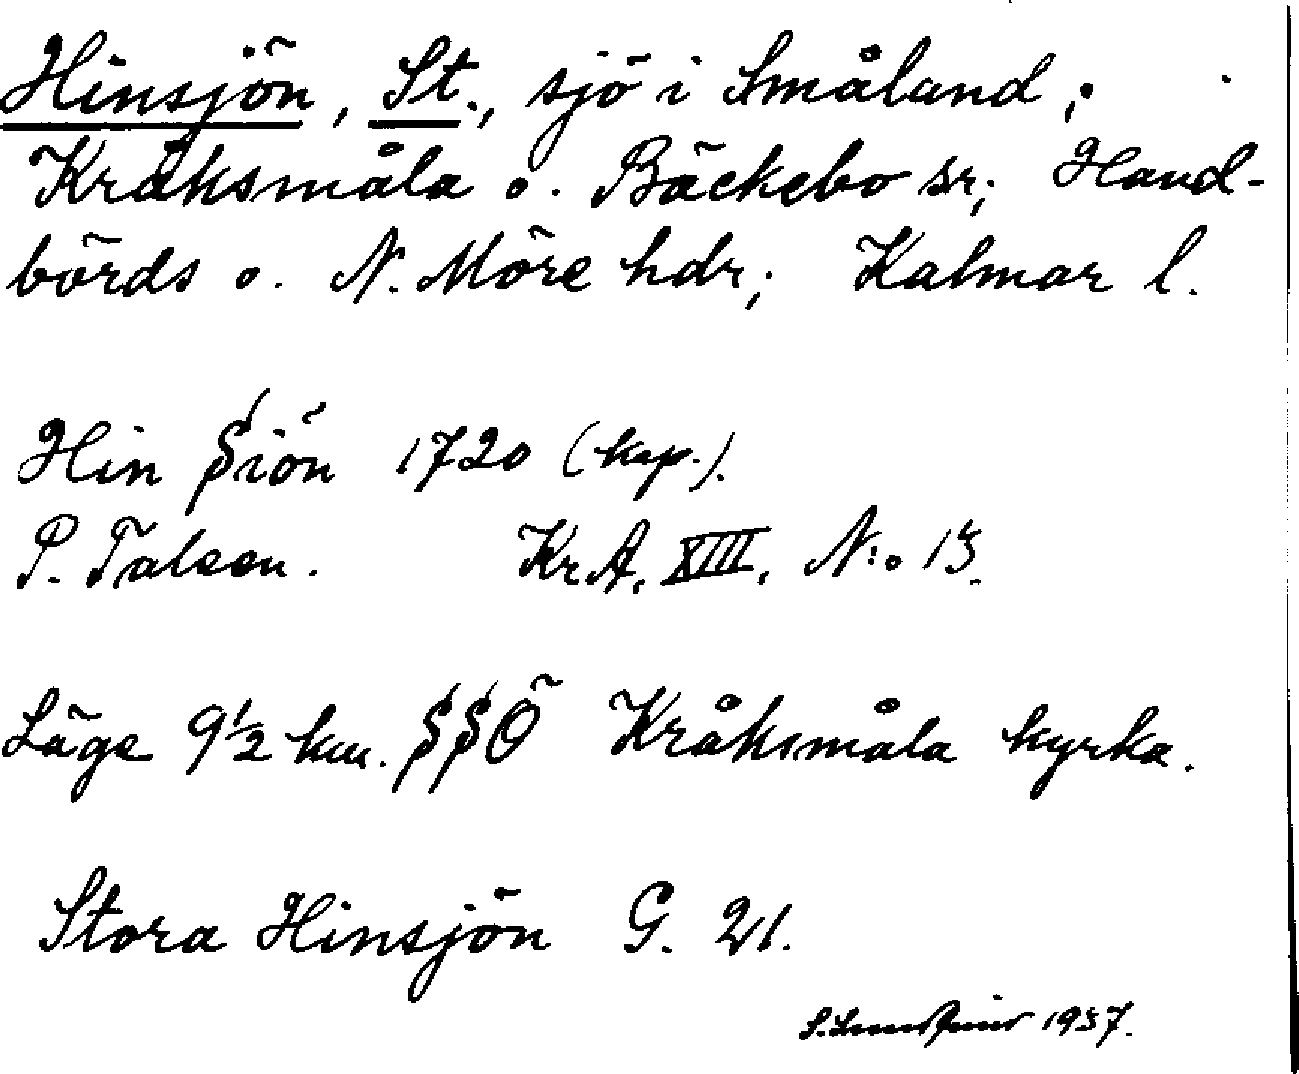 Hinsjön, St., sjö i Småland;
Kråksmåla o. Bäckebo sr; Hand-
börds o. N. Möre hdr; Kalmar l.
Hin Siön 1720 (kop.).
P. Taleen. KrA, XIII, N:o 15.
Läge 9½ km. SSÖ Kråksmåla kyrka.
Stora Hinsjön G. 21.
1937.